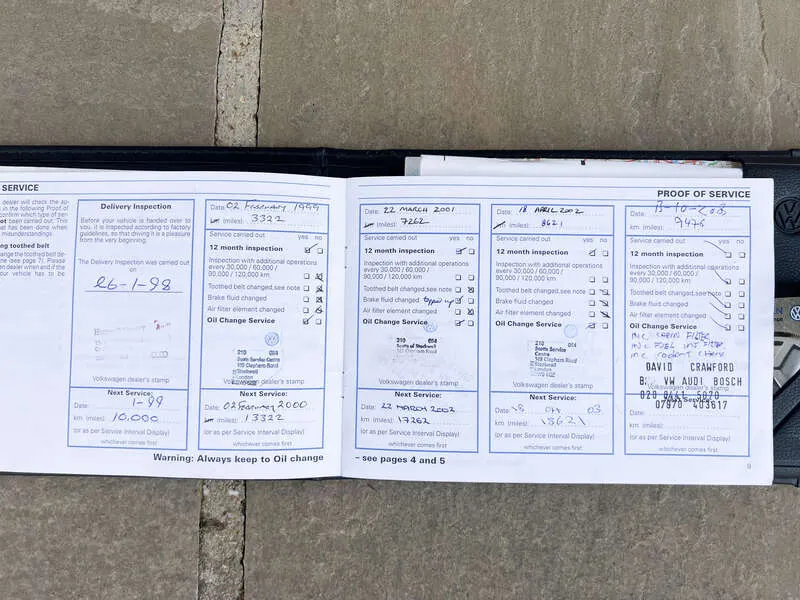 SERVICE
dealer will check the
in the following Proof of
confirm which type of
been carried out. This
hat has been done when
misunderstandings.
ng toothed belt
hange the toothed belt
(see page 7). Please
dealer when and if the
our vehicle has to be
Delivery Inspection
Before your vehicle is handed over to
you, it is inspected according to factory
guidelines, so that driving it is a pleasure
from the very beginning.
The Delivery Inspection was carried out
on
26-1-98
Volkswagen dealer's stamp
Next Service:
Date: 1-99
km (miles): 10,000
(or as per Service Interval Display)
whichever comes first
Date: 02 February 1999
km (miles): 3322
Service carried out: yes no
12 month inspection
Inspection with additional operations
every 30,000 / 60,000 /
90,000 / 120,000 km
Toothed belt changed, see note
Brake fluid changed
Air filter element changed
Oil Change Service
210 054
Scotts Service
Centre
103 Clapham Road
Stockwell
London
SW9
Volkswagen dealer's stamp
Next Service:
Date: 02 February 2000
km (miles): 13322
(or as per Service Interval Display)
whichever comes first
Warning: Always keep to Oil change
PROOF OF SERVICE
Date: 22 MARCH 2001
km (miles): 7262
Service carried out: yes no
12 month inspection
Inspection with additional operations
every 30,000 / 60,000 /
90,000 / 120,000 km
Toothed belt changed, see note
Brake fluid changed
Air filter element changed
Oil Change Service
210 054
Scotts of Stockwell
103 Clapham Road
Volkswagen dealer's stamp
Next Service:
Date: 22 MARCH 2002
km (miles): 17262
(or as per Service Interval Display)
whichever comes first
Date: 18 APRIL 2002
km (miles): 8621
Service carried out: yes no
12 month inspection
Inspection with additional operations
every 30,000 / 60,000 /
90,000 / 120,000 km
Toothed belt changed, see note
Brake fluid changed
Air filter element changed
Oil Change Service
210 054
Scotts Service
Centre
103 Clapham Road
Stockwell
London
Volkswagen dealer's stamp
Next Service:
Date: 18 04 03
km (miles): 18621
(or as per Service Interval Display)
whichever comes first
Date:
km (miles): 9476
Service carried out: yes no
12 month inspection
Inspection with additional operations
every 30,000 / 60,000 /
90,000 / 120,000 km
Toothed belt changed, see note
Brake fluid changed
Air filter element changed
Oil Change Service
INC CABIN FILTER
INC FUEL FILTER
INC COOLANT CHANGE
DAVID CRAWFORD
VW AUDI BOSCH
Volkswagen dealer's stamp
07970 403617
Next Service:
Date:
km (miles):
(or as per Service Interval Display)
whichever comes first
– see pages 4 and 5
9